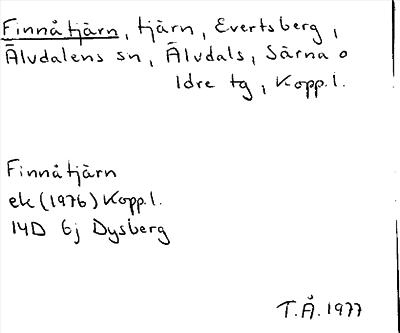 Finnåtjärn, tjärn, Evertsberg,
Älvdalens sn, Älvdals, Särna o
Idre tg, Kopp.l.
Finnåtjärn
ek (1976) Kopp.l.
14D 6j Dysberg
T.Å. 1977